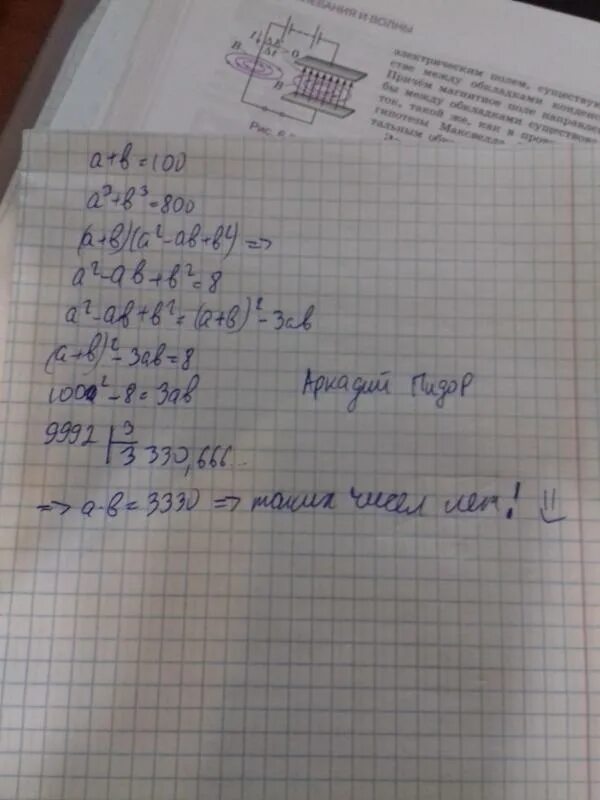 ЕВАНИЯ И ВОЛНЫ
электрическим полем, существую
стве между обкладками конден
Причём магнитное поле направлен
бы между обкладками существов
ток, такой же, как в пров
гипотезы Максвелла
тальным об
I
ΔE
Δt
> 0
B
B
Рис. 6
a+b=100
a³+b³=800
(a+b)(a²-ab+b²) =>
a²-ab+b²=8
a²-ab+b²=(a+b)²-3ab
(a+b)²-3ab=8
100²-8=3ab
Аркадий Пидор
9992 | 3
3330,666...
=> a·b=3330 => таких чисел нет!